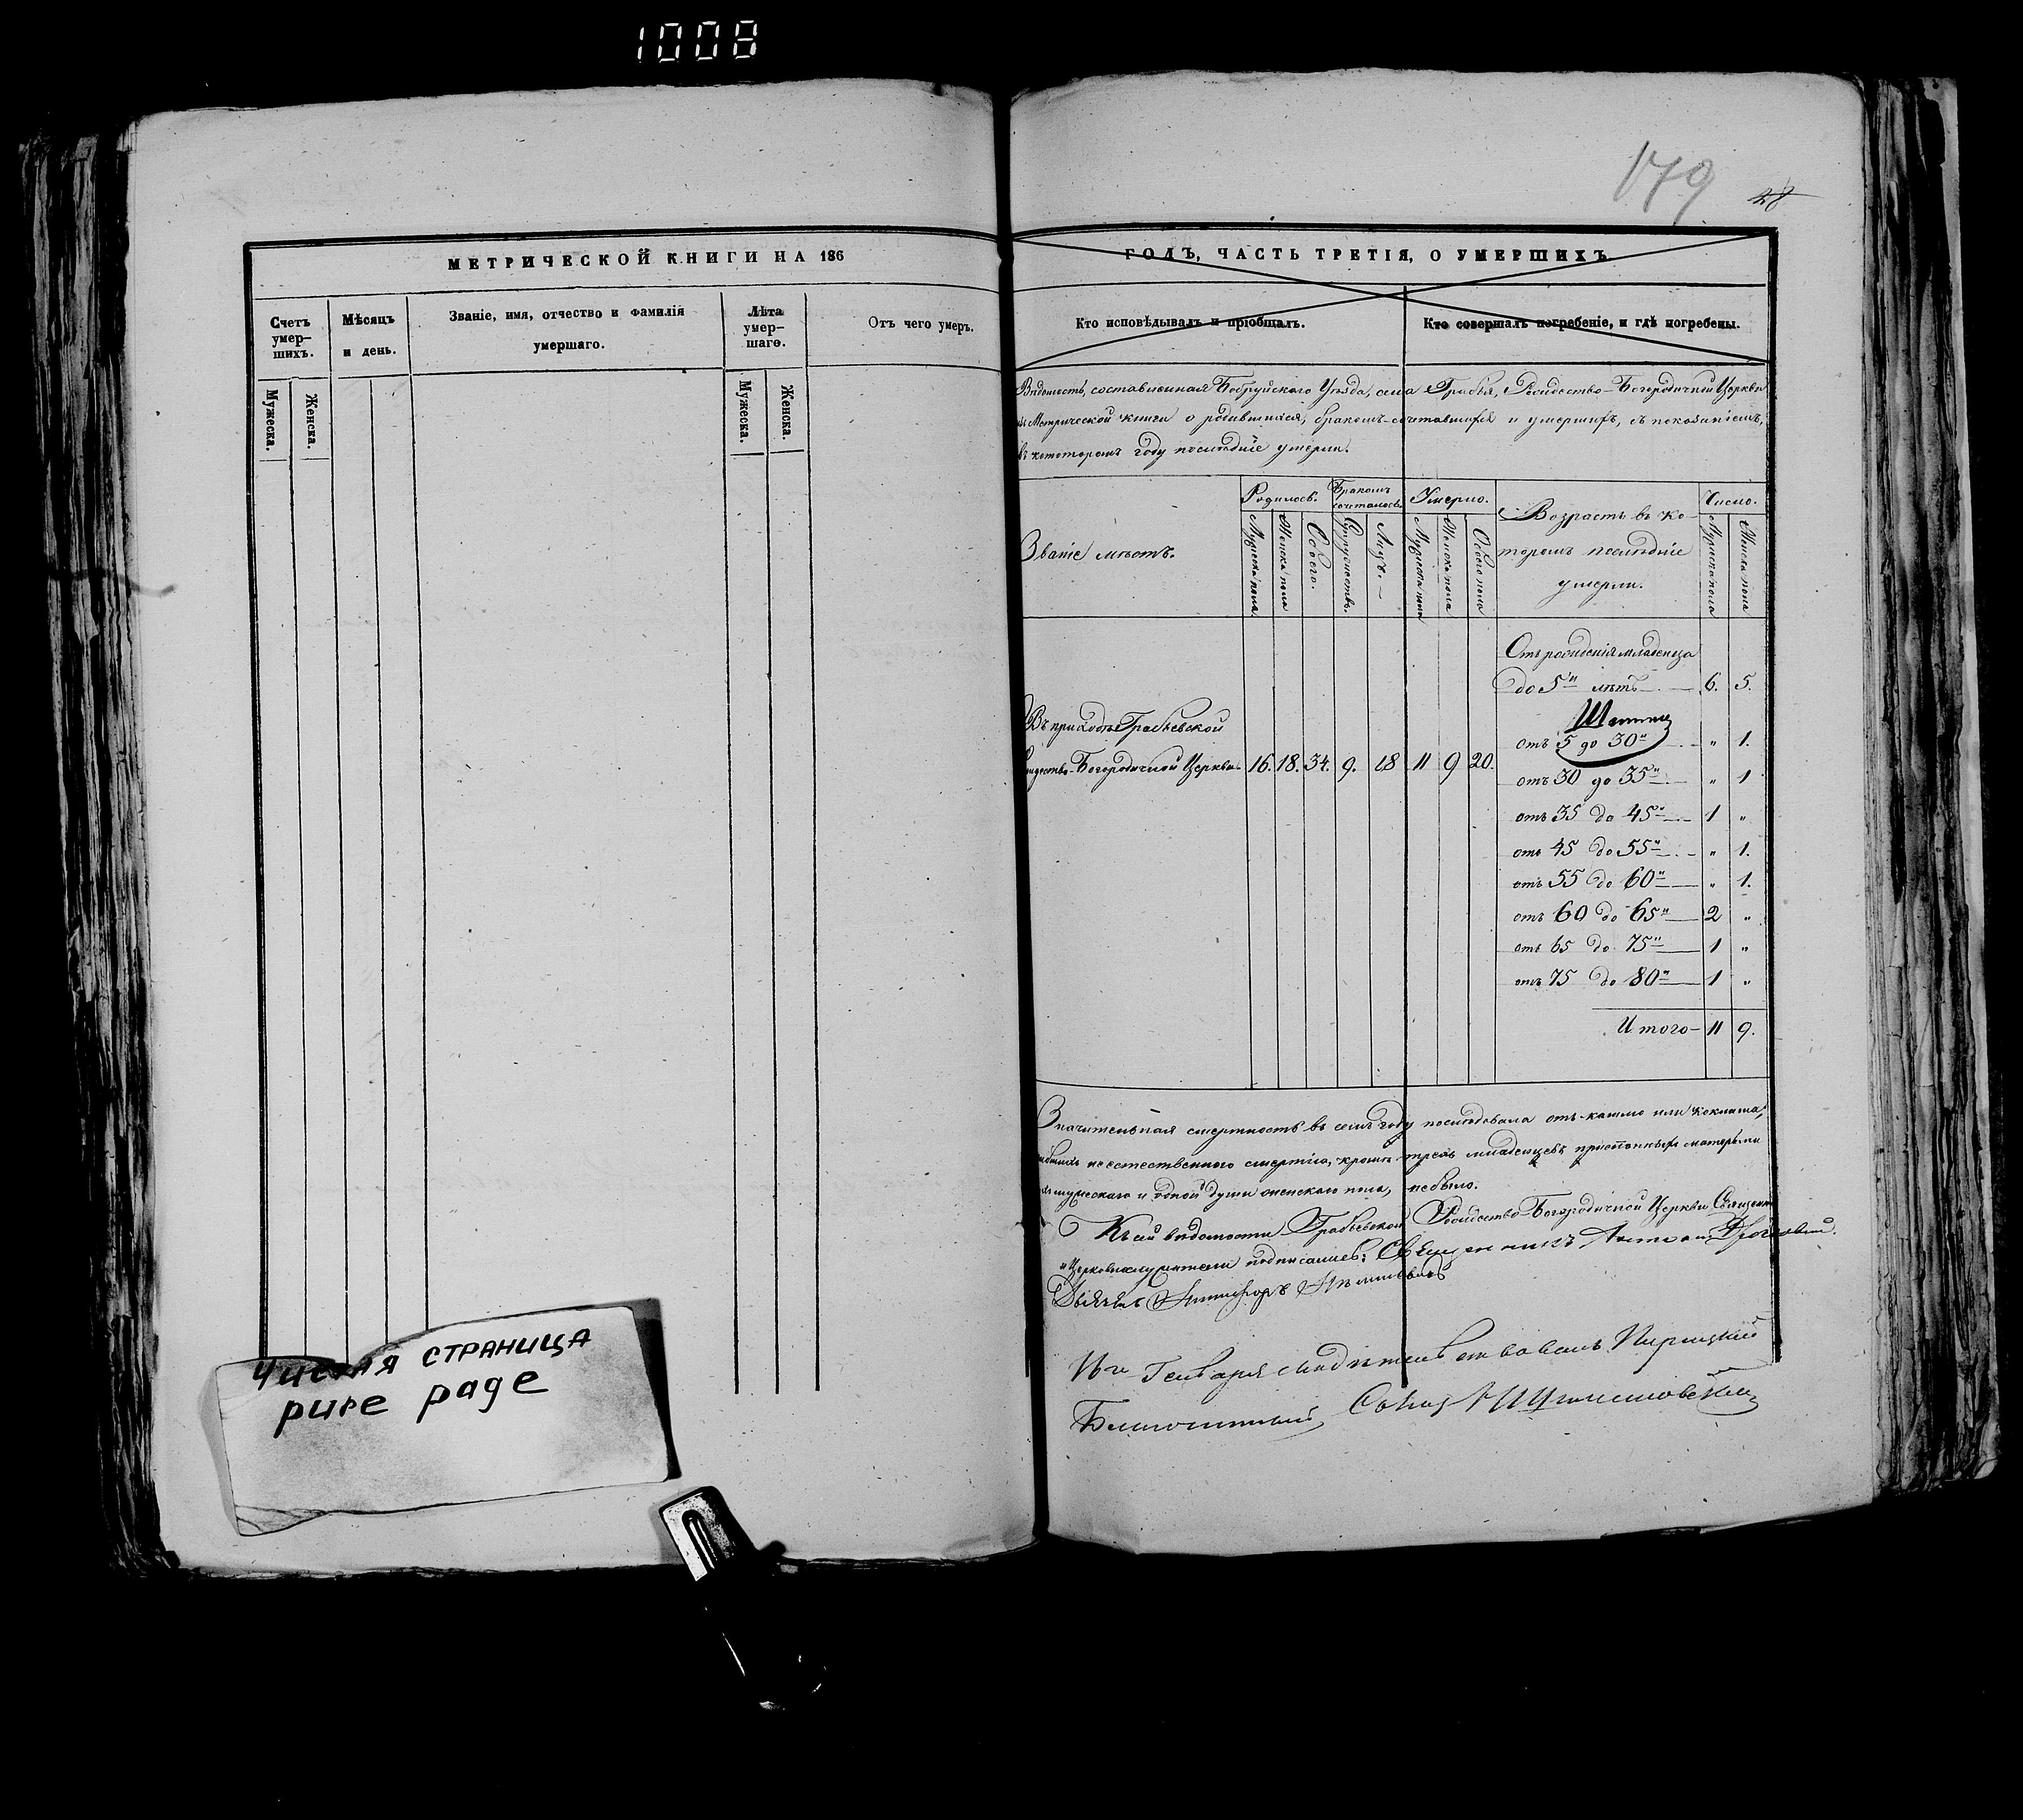 1008
179
28
МЕТРИЧЕСКОЙ КНИГИ НА 186
ГОДЪ, ЧАСТЬ ТРЕТІЯ, О УМЕРШИХЪ.
Счетъ умер-шихъ.
Мѣсяцъ и день.
Званіе, имя, отчество и фамилія
умершаго.
Лѣта умер-шаго.
Отъ чего умеръ.
Мужеска.
Женска.
Мужеска.
Женска.
Кто исповѣдывалъ и пріобщалъ.
Кто совершалъ погребеніе, и гдѣ погребены.
Вѣдомость, составленная Бобруйскаго Уѣзда, села Грабья, Рождество-Богородичной Церкви
Метрической книги о родившихся, бракомъ-сочтавшихся и умершихъ, съ показаніемъ,
въ которомъ году послѣдніе умерли.
Званіе мѣстъ.
Родилось.
Бракомъ сочеталось.
Умерло.
Возрастъ въ ко-
торомъ послѣдніе
умерли.
Число.
Мужеска пола
Женска пола
Обоего.
Супружествъ.
Лицъ.
Мужеска пола
Женска пола
Обоего пола
Мужеска пола
Женска пола
Отъ рожденія младенца
до 5и лѣтъ 6. 5.
Въ приходѣ Грабьевской
Рождество-Богородичной Церкви 16. 18. 34. 9. 18 11 9 20.
отъ 5 до 30и " 1.
отъ 30 до 35и " 1
отъ 35 до 45и 1 "
отъ 45 до 55и " 1.
отъ 55 до 60и " 1.
отъ 60 до 65и 2 "
отъ 65 до 75и 1 "
отъ 75 до 80и 1 "
Итого 11 9.
Значительная смертность въ семъ году послѣдовала отъ кашлю или коклюша,
неестественною смертію, кромѣ трехъ младенцевъ приспанныхъ матерьми
мужескаго и одной души женскаго пола, небыло.
Къ сей вѣдомости Грабьевской Рождество-Богородичной Церкви Священно
и Церковнослужители подписались: Священникъ Антоній
Дьячекъ
Генваря свидѣтельствовалъ Паричскій
Благочинный
Чистая страница
pure page